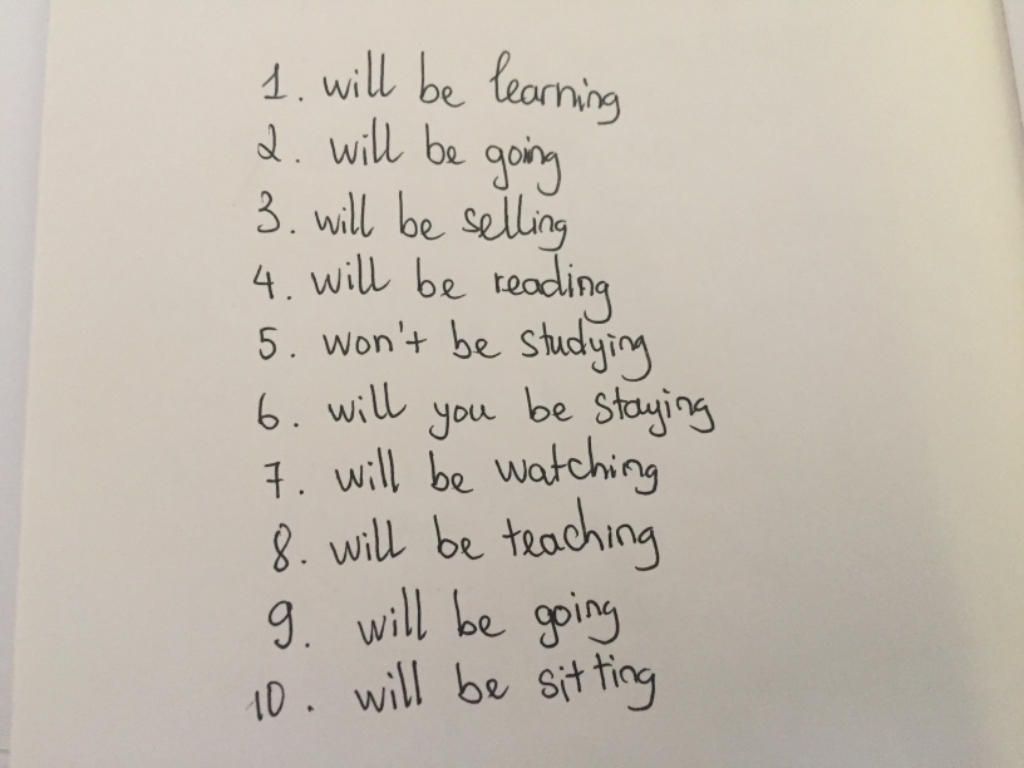 1. will be learning
2. will be going
3. will be selling
4. will be reading
5. won't be studying
6. will you be staying
7. will be watching
8. will be teaching
9. will be going
10. will be sitting